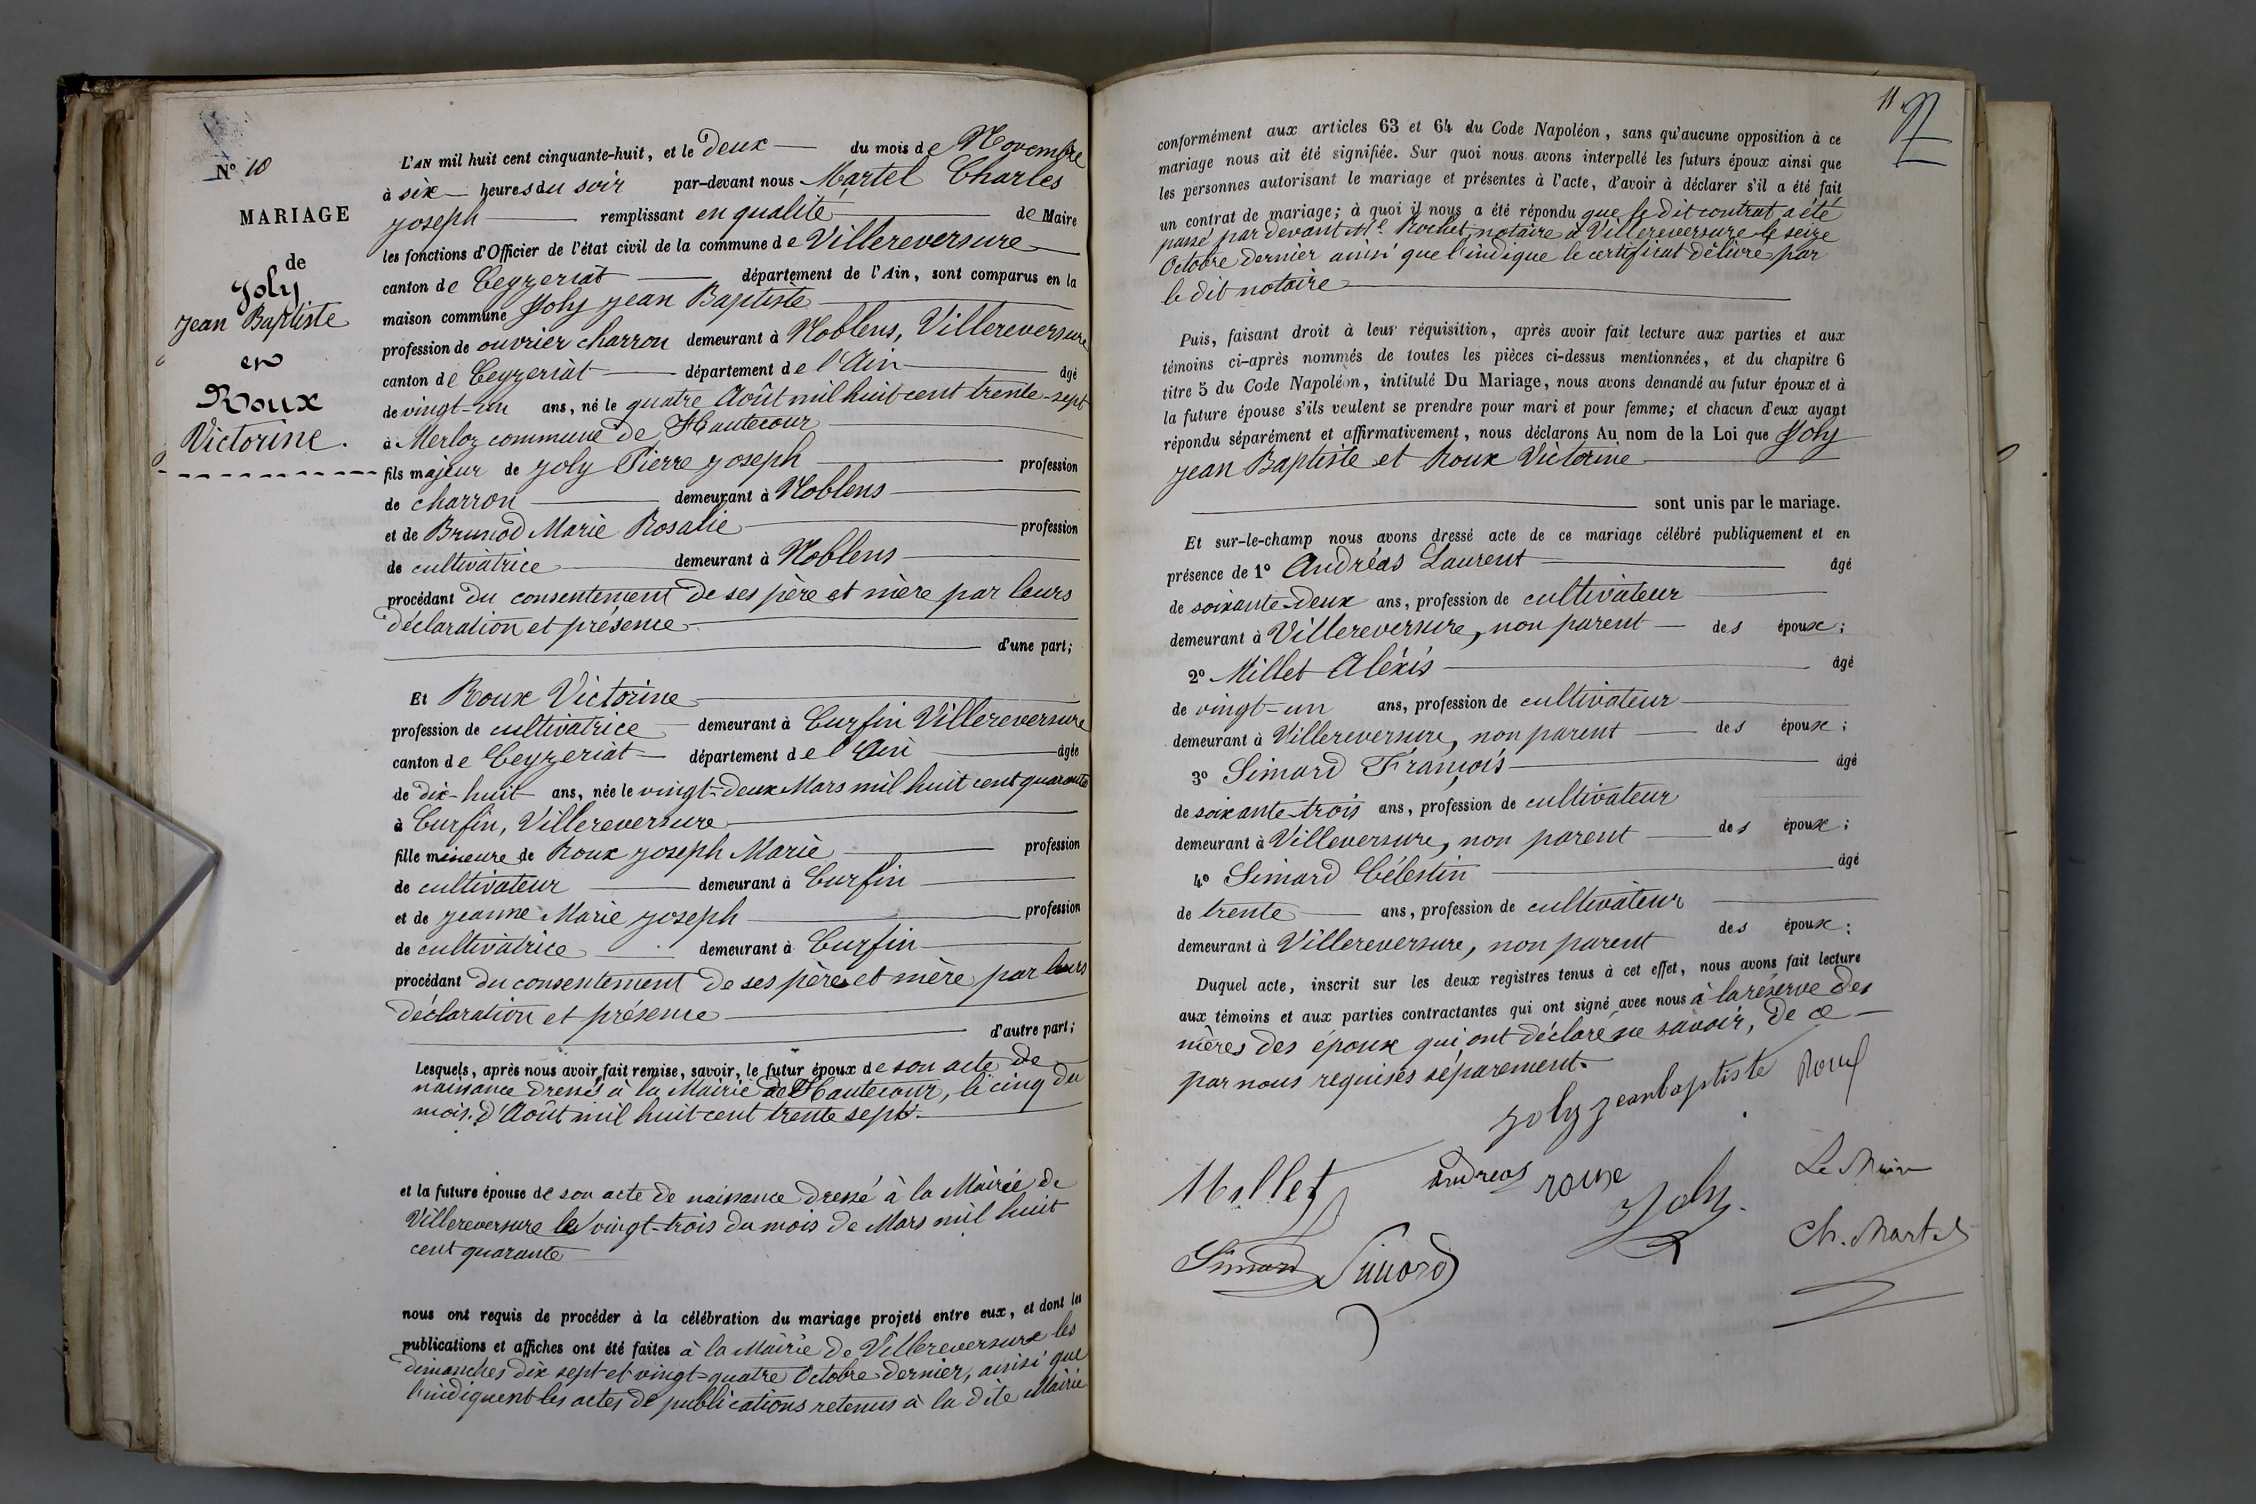 N° 10
MARIAGE
de
Joly
Jean Baptiste
et
Roux
Victorine.
L'AN mil huit cent cinquante-huit, et le deux du mois de Novembre
à six heures du soir par-devant nous Martel Charles
Joseph remplissant en qualité de Maire
les fonctions d'Officier de l'état civil de la commune de Villereversure
canton de Ceyzeriat département de l'Ain, sont comparus en la
maison commune Joly Jean Baptiste
profession de ouvrier charron demeurant à Noblens, Villereversure
canton de Ceyzeriat département de l'Ain âgé
de vingt-un ans, né le quatre Août mil huit cent trente-sept
à Merloz commune de Hautecour
fils majeur de Joly Pierre Joseph profession
de charron demeurant à Noblens
et de Brunod Marie Rosalie profession
de cultivatrice demeurant à Noblens
procédant du consentement de ses père et mère par leurs
déclaration et présence
d'une part;
Et Roux Victorine
profession de cultivatrice demeurant à Curfin Villereversure
canton de Ceyzeriat département de l'Ain âgée
de dix-huit ans, née le vingt-deux Mars mil huit cent quarante
à Curfin, Villereversure
fille mineure de Roux Joseph Marie profession
de cultivateur demeurant à Curfin
et de Jeanne Marie Joseph profession
de cultivatrice demeurant à Curfin
procédant du consentement de ses père et mère par leurs
déclaration et présence
d'autre part;
Lesquels, après nous avoir fait remise, savoir, le futur époux de son acte de
naissance dressé à la Mairie de Hautecour, le cinq du
mois d'Août mil huit cent trente sept
et la future épouse de son acte de naissance dressé à la Mairie de
Villereversure le vingt-trois du mois de Mars mil huit
cent quarante
nous ont requis de procéder à la célébration du mariage projeté entre eux, et dont les
publications et affiches ont été faites à la Mairie de Villereversure les
dimanches dix sept et vingt-quatre Octobre dernier, ainsi que
l'indiquent les actes de publications retenus à la dite Mairie
11
conformément aux articles 63 et 64 du Code Napoléon, sans qu'aucune opposition à ce
mariage nous ait été signifiée. Sur quoi nous avons interpellé les futurs époux ainsi que
les personnes autorisant le mariage et présentes à l'acte, d'avoir à déclarer s'il a été fait
un contrat de mariage; à quoi il nous a été répondu que le dit contrat a été
passé par devant Me Rochet, notaire à Villereversure le seize
Octobre dernier ainsi que l'indique le certificat délivré par
le dit notaire
Puis, faisant droit à leur réquisition, après avoir fait lecture aux parties et aux
témoins ci-après nommés de toutes les pièces ci-dessus mentionnées, et du chapitre 6
titre 5 du Code Napoléon, intitulé Du Mariage, nous avons demandé au futur époux et à
la future épouse s'ils veulent se prendre pour mari et pour femme; et chacun d'eux ayant
répondu séparément et affirmativement, nous déclarons Au nom de la Loi que Joly
Jean Baptiste et Roux Victorine
sont unis par le mariage.
Et sur-le-champ nous avons dressé acte de ce mariage célébré publiquement et en
présence de 1° Andréas Laurent âgé
de soixante-deux ans, profession de cultivateur
demeurant à Villereversure, non parent des époux;
2° Millet Aléxis âgé
de vingt-un ans, profession de cultivateur
demeurant à Villereversure, non parent des époux;
3° Simard François âgé
de soixante-trois ans, profession de cultivateur
demeurant à Villeversure, non parent des époux;
4° Simard Célestin âgé
de trente ans, profession de cultivateur
demeurant à Villereversure, non parent des époux;
Duquel acte, inscrit sur les deux registres tenus à cet effet, nous avons fait lecture
aux témoins et aux parties contractantes qui ont signé avec nous à la réserve des
mères des époux qui ont déclaré ne savoir, de ce
par nous requises séparement.
Joly Jean baptiste Roux
Millet Andreas roux Joly Le Maire
Simard Simard Ch. Martel